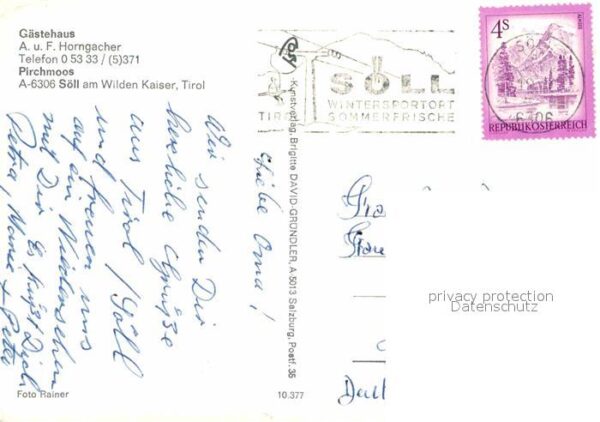 Gästehaus
A. u. F. Horngacher
Telefon 0 53 33 / (5)371
Pirchmoos
A-6306 Söll am Wilden Kaiser, Tirol
SÖLL
WINTERSPORTORT
SOMMERFRISCHE
TIROL
4S
ALMSEE
REPUBLIK ÖSTERREICH
6306
Kunstverlag Brigitte DAVID-GRÜNDLER, A 5013 Salzburg, Postf. 36
10.377
Liebe Oma!
Wir senden Dir
herzliche Grüße
aus Tirol / Söll
und freuen uns
auf ein Wiedersehen
mit Dir. Es küßt Dich
Petra, + Peter
Frau
privacy protection
Datenschutz
Foto Rainer